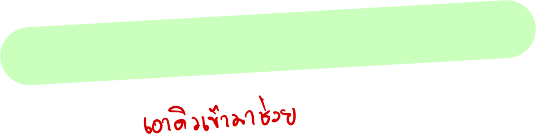 เอาคิวเข้ามาช่วย